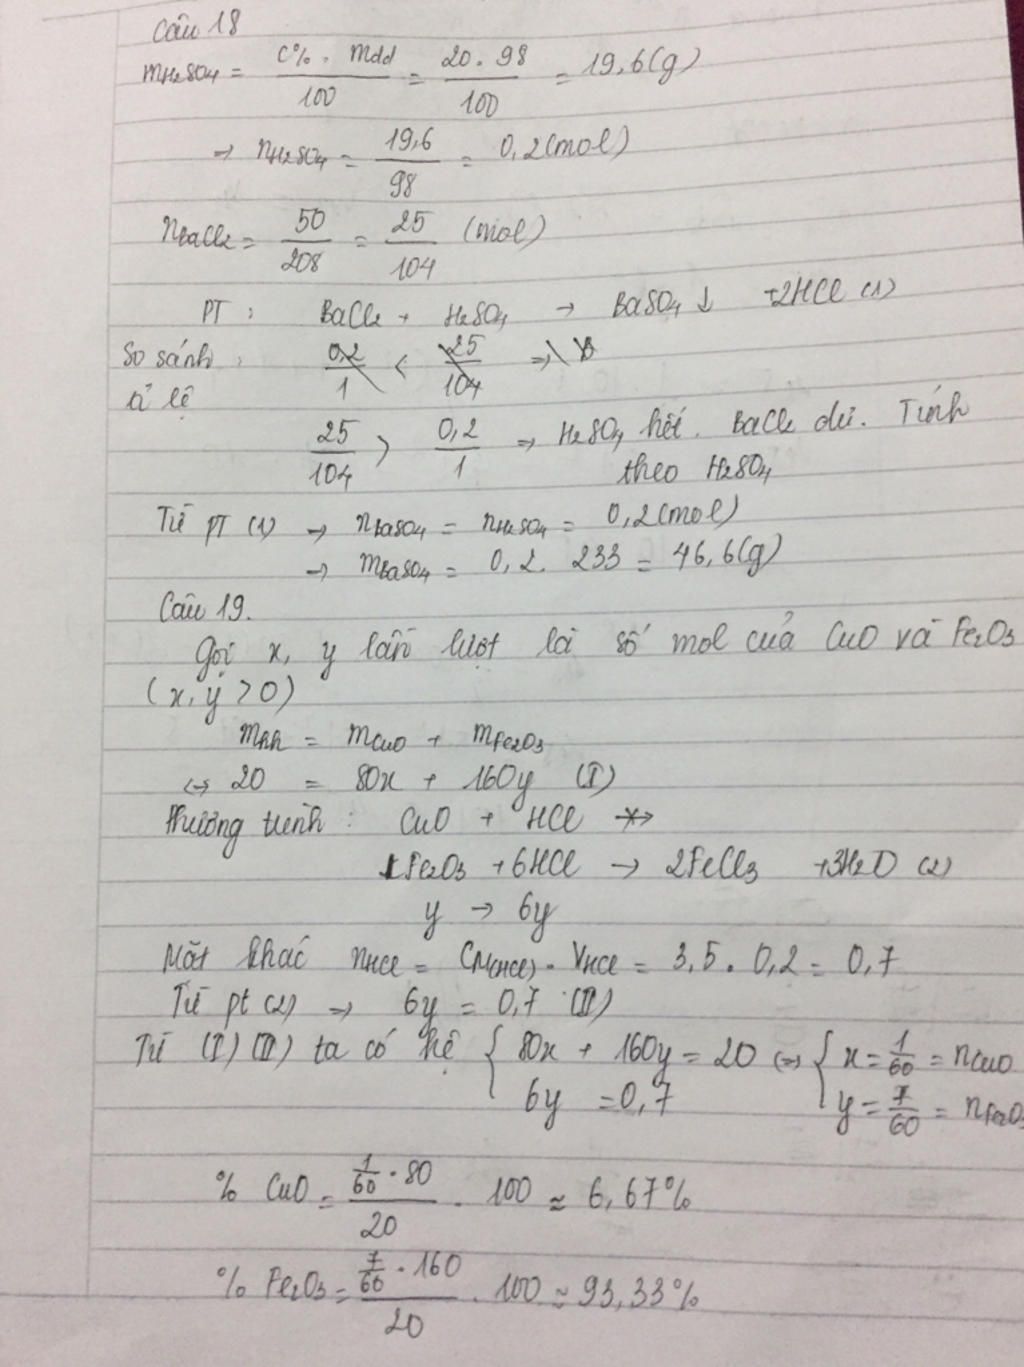 Câu 18
mH2SO4 = C% . mdd / 100 = 20 . 98 / 100 = 19,6 (g)
→ nH2SO4 = 19,6 / 98 = 0,2 (mol)
nBaCl2 = 50 / 208 = 25 / 104 (mol)
PT : BaCl2 + H2SO4 → BaSO4 ↓ + 2HCl (1)
So sánh : 0,2 / 1 < 25 / 104 ⇒
tỉ lệ
25 / 104 > 0,2 / 1 ⇒ H2SO4 hết. BaCl2 dư. Tính
theo H2SO4
Từ PT (1) → nBaSO4 = nH2SO4 = 0,2 (mol)
→ mBaSO4 = 0,2 . 233 = 46,6 (g)
Câu 19.
Gọi x, y lần lượt là số mol của CuO và Fe2O3
(x, y > 0)
mhh = mCuO + mFe2O3
<=> 20 = 80x + 160y (I)
Phương trình : CuO + HCl
1Fe2O3 + 6HCl → 2FeCl3 + 3H2O (2)
y → 6y
Mặt khác nHCl = CM(HCl) . VHCl = 3,5 . 0,2 = 0,7
Từ pt (2) → 6y = 0,7 (II)
Từ (I) (II) ta có hệ { 80x + 160y = 20 <=> { x = 1/60 = nCuO
6y = 0,7 y = 7/60 = nFe2O3
% CuO = 1/60 . 80 / 20 . 100 ≈ 6,67%
% Fe2O3 = 7/60 . 160 / 20 . 100 ≈ 93,33%